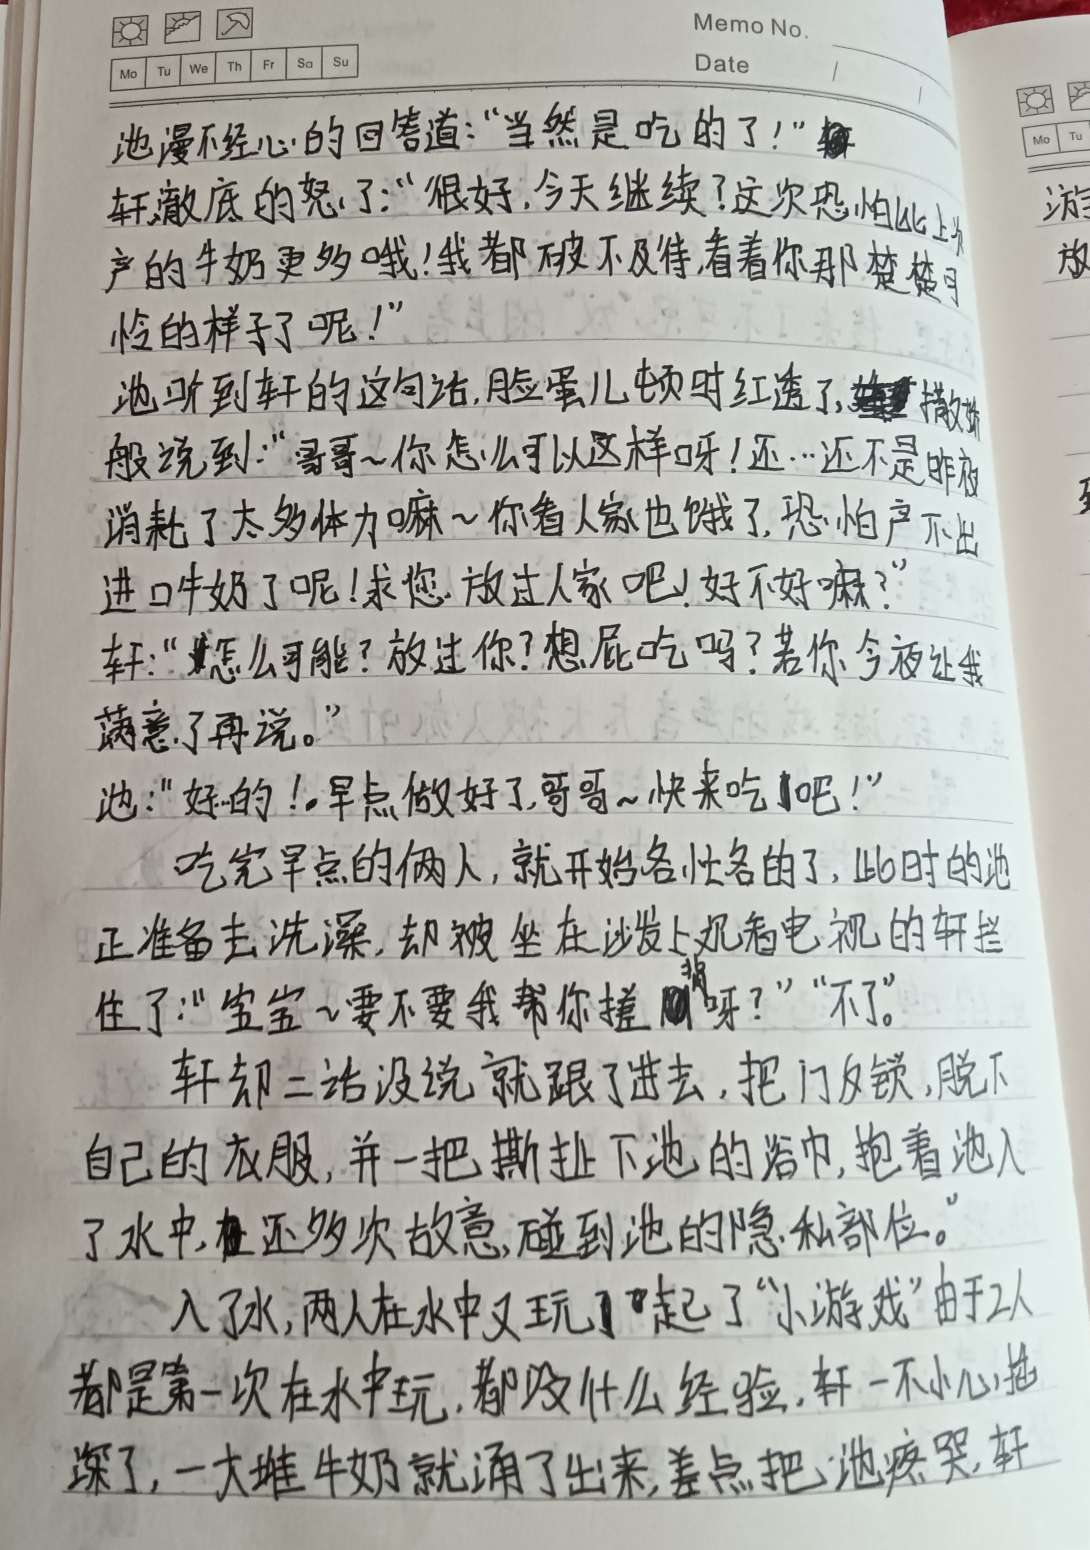 Memo No.
Mo Tu We Th Fr Sa Su
Date / /
池漫不经心的回答道:“当然是吃的了!”
轩澈底的怒了:“很好,今天继续?这次恐怕比上次
产的牛奶更多哦!我都破不及待,看着你那楚楚可
怜的样子了呢!”
池听到轩的这句话,脸蛋儿顿时红透了,撒娇
般说到:“哥哥~你怎么可以这样呀!还…还不是昨夜
消耗了太多体力嘛~你看人家也饿了,恐怕产不出
进口牛奶了呢!求您放过人家吧!好不好嘛?”
轩:“怎么可能?放过你?想屁吃吗?若你今夜让我
满意了再说。”
池:“好的!早点做好了,哥哥~快来吃吧!”
吃完早点的俩人,就开始各忙各的了,此时的池
正准备去洗澡,却被坐在沙发上观看电视的轩拦
住了:“宝宝~要不要我帮你搓背呀?”“不了。”
轩却二话没说就跟了进去,把门反锁,脱下
自己的衣服,并一把撕扯下池的浴巾,抱着池入
了水中,还多次故意碰到池的隐私部位。”
入了水,两人在水中又玩起了“小游戏”由于2人
都是第一次在水中玩,都没什么经验,轩一不小心插
深了,一大堆牛奶就涌了出来,差点把池疼哭,轩
Mo Tu
游
放